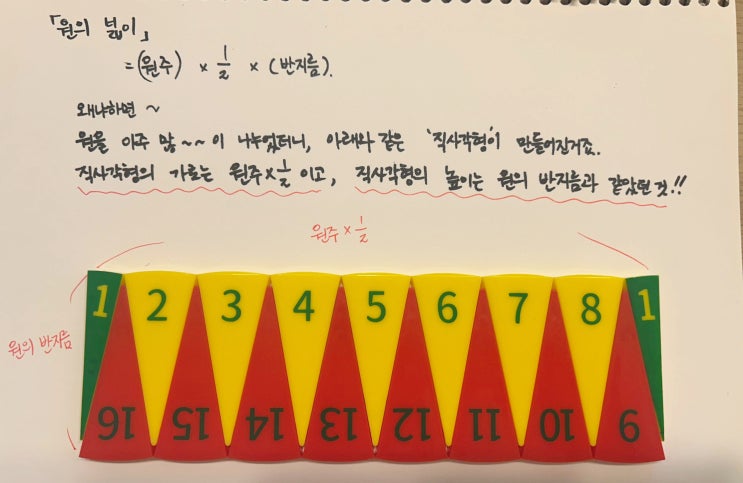 「원의 넓이」
= (원주) × 1/2 × (반지름).
왜냐하면 ~
원을 아주 많~~이 나누었더니, 아래와 같은 '직사각형'이 만들어진거죠.
직사각형의 가로는 원주×1/2 이고, 직사각형의 높이는 원의 반지름과 같았던 것!!
원주 × 1/2
1 2 3 4 5 6 7 8 1
원의 반지름
16 15 14 13 12 11 10 9